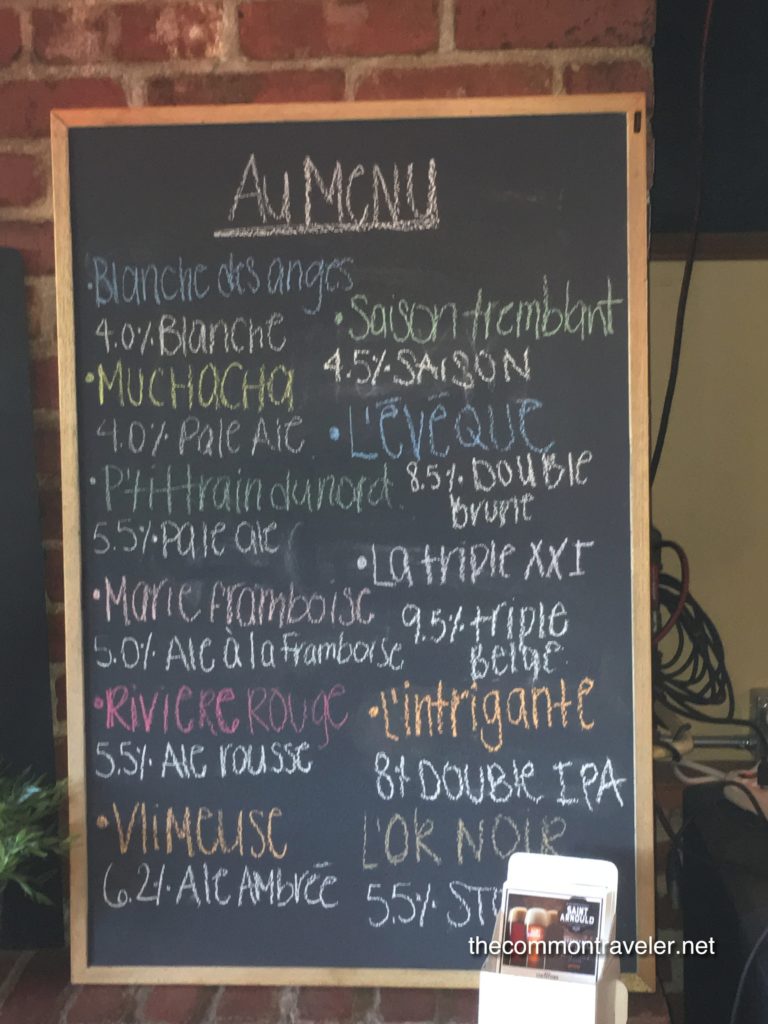 Au Menu
•Blanche des anges
4.0% Blanche
•MUCHACHA
4.0% Pale Ale
•P'tit train du nord
5.5% Pale ale
•Marie framboise
5.0% Ale à la Framboise
•RIVIERE ROUGE
5.5% Ale rousse
•VliMEUSE
6.2% Ale AMBRÉE
•Saison tremblant
4.5% SAISON
•L'ÉVÊQUE
8.5% DOUBLE
brune
•La triple XXI
9.5% triple
BELGE
•L'intrigante
8% DOUBLE IPA
L'OR NOIR
5.5%
SAINT
ARNOULD
thecommontraveler.net